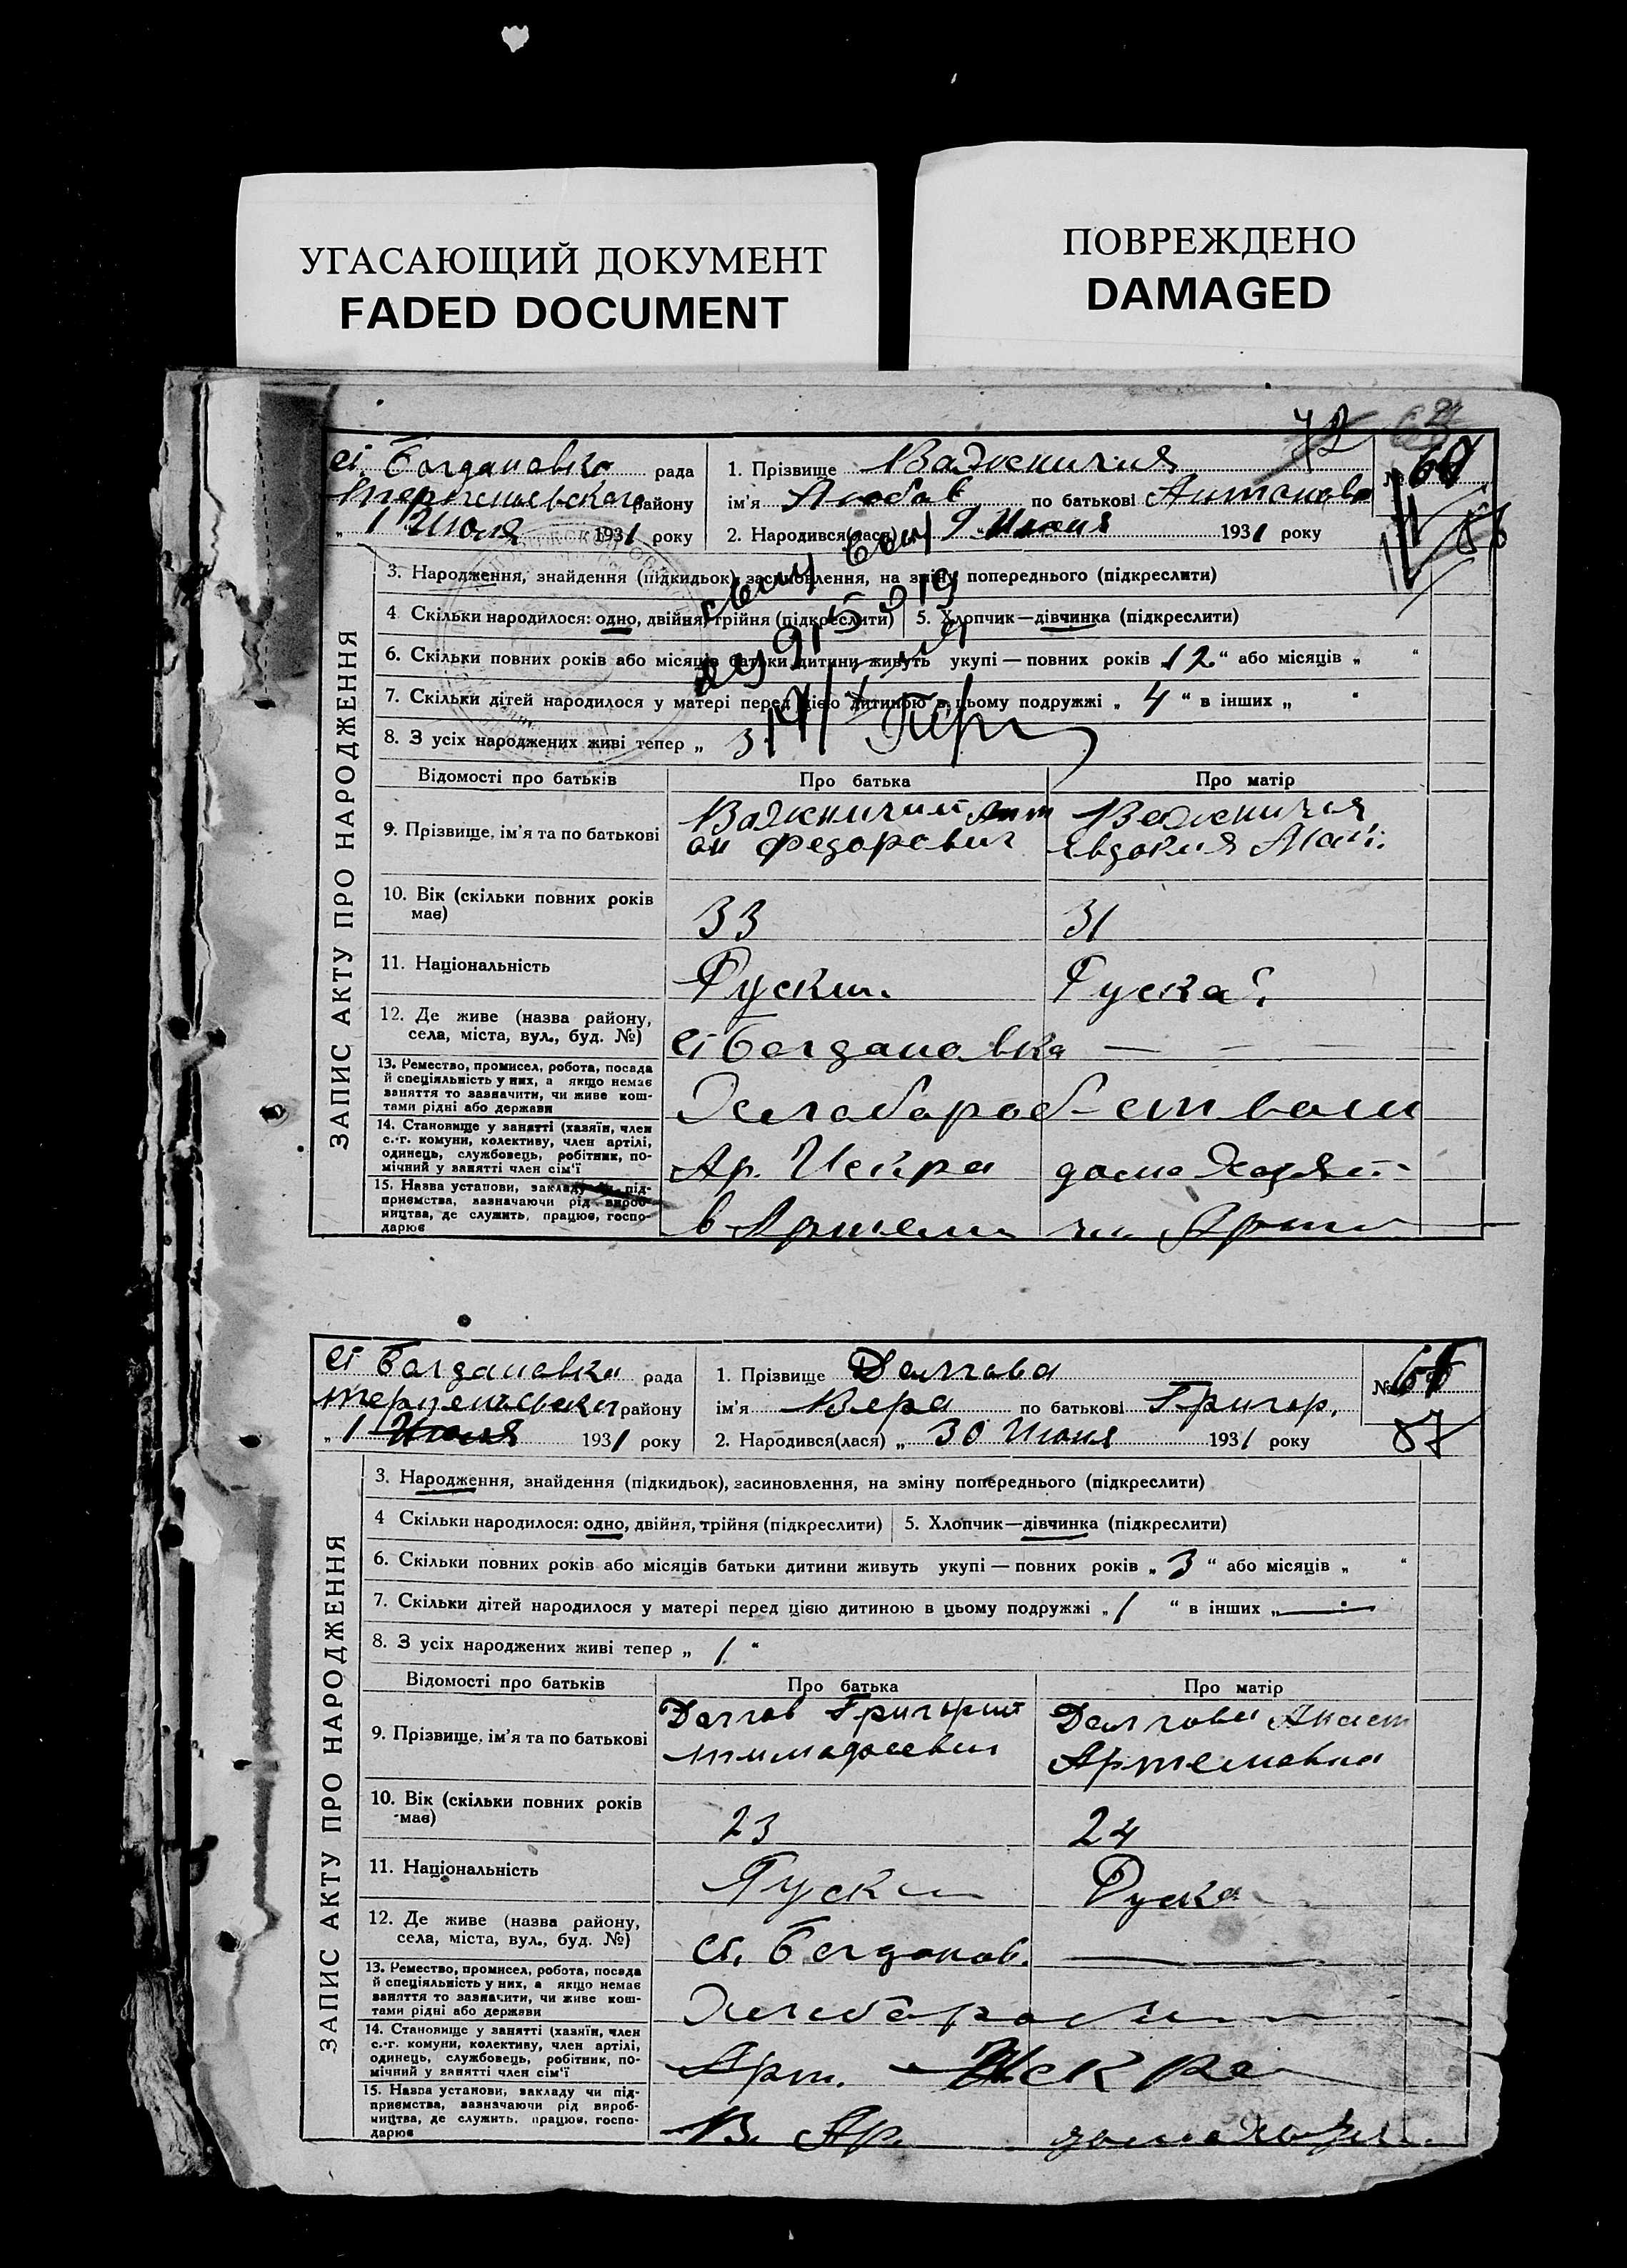 УГАСАЮЩИЙ ДОКУМЕНТ
FADED DOCUMENT
ПОВРЕЖДЕНО
DAMAGED
ЗАПИС АКТУ ПРО НАРОДЖЕННЯ
с. Богдановка рада
района
1 Июля 1931 року
1. Прізвище Важничия
ім'я Любов по батькові Антонова
2. Народився(лася) Июня 1931 року
86
3. Народження, знайдення (підкидьок), засиновлення, на зміну попереднього (підкреслити)
4 Скільки народилося: одно, двійня, трійня (підкреслити) 5. Хлопчик—дівчинка (підкреслити)
6. Скільки повних років або місяців батьки дитини живуть укупі — повних років 12 “ або місяців „ “
7. Скільки дітей народилося у матері перед цією дитиною в цьому подружжі „ 4 “ в інших „ “
8. З усіх народжених живі тепер „ 3
Відомості про батьків Про батька Про матір
9. Прізвище, ім'я та по батькові
Важничий Ант
он Федорович
Важничия
Евдокия
10. Вік (скільки повних років має) 33 31
11. Національність Руский Руска
12. Де живе (назва району, села, міста, вул., буд. №) с. Богдановка —
13. Ремество, промисел, робота, посада й спеціяльність у них, а якщо немає заняття то зазначити, чи живе коштами рідні або держави
14. Становище у занятті (хазяїн, член с.-г. комуни, колективу, член артілі, одинець, службовець, робітник, помічний у занятті член сім'ї Ар. Искра
15. Назва установи, закладу чи підприємства, зазначаючи рід виробництва, де служить, працює, господарює в Артели
ЗАПИС АКТУ ПРО НАРОДЖЕННЯ
с. Богдановка рада
району
1 Июля 1931 року
1. Прізвище Долгова
ім'я Вера по батькові Григор.
2. Народився(лася) „ 30 Июня 1931 року
87
3. Народження, знайдення (підкидьок), засиновлення, на зміну попереднього (підкреслити)
4 Скільки народилося: одно, двійня, трійня (підкреслити) 5. Хлопчик—дівчинка (підкреслити)
6. Скільки повних років або місяців батьки дитини живуть укупі — повних років „ 3 “ або місяців „ “
7. Скільки дітей народилося у матері перед цією дитиною в цьому подружжі „ 1 “ в інших „ — “
8. З усіх народжених живі тепер „ 1 “
Відомості про батьків Про батька Про матір
9. Прізвище, ім'я та по батькові
Долгов Григорий
Тимофеевич
Долгова Анаст
Артемовна
10. Вік (скільки повних років має) 23 24
11. Національність Руски Руска
12. Де живе (назва району, села, міста, вул., буд. №) с. Богданов. —
13. Ремество, промисел, робота, посада й спеціяльність у них, а якщо немає заняття то зазначити, чи живе коштами рідні або держави
14. Становище у занятті (хазяїн, член с.-г. комуни, колективу, член артілі, одинець, службовець, робітник, помічний у занятті член сім'ї Арт. Искра
15. Назва установи, закладу чи підприємства, зазначаючи рід виробництва, де служить, працює, господарює В. Ар.